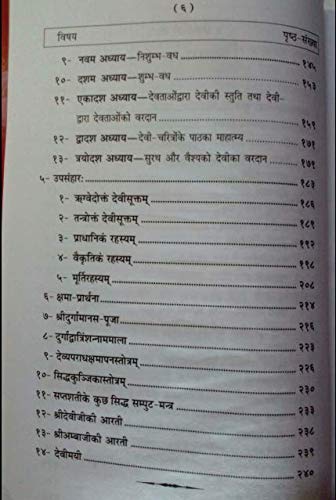 ( ६ )
विषय पृष्ठ-संख्या
९- नवम अध्याय—निशुम्भ-वध १४५
१०- दशम अध्याय—शुम्भ-वध १५३
११- एकादश अध्याय—देवताओंद्वारा देवीकी स्तुति तथा देवी-
द्वारा देवताओंको वरदान १५९
१२- द्वादश अध्याय—देवी-चरित्रोंके पाठका माहात्म्य १७१
१३- त्रयोदश अध्याय—सुरथ और वैश्यको देवीका वरदान १७९
५- उपसंहारः १८३
१- ऋग्वेदोक्तं देवीसूक्तम् १८६
२- तन्त्रोक्तं देवीसूक्तम् १८९
३- प्राधानिकं रहस्यम् १९२
४- वैकृतिकं रहस्यम् १९८
५- मूर्तिरहस्यम् २०८
६- क्षमा-प्रार्थना २१४
७- श्रीदुर्गामानस-पूजा २१६
८- दुर्गाद्वात्रिंशन्नाममाला २२३
९- देव्यपराधक्षमापनस्तोत्रम् २२६
१०- सिद्धकुञ्जिकास्तोत्रम् २३०
११- सप्तशतीके कुछ सिद्ध सम्पुट-मन्त्र २३३
१२- श्रीदेवीजीकी आरती २३८
१३- श्रीअम्बाजीकी आरती २३९
१४- देवीमयी २४०